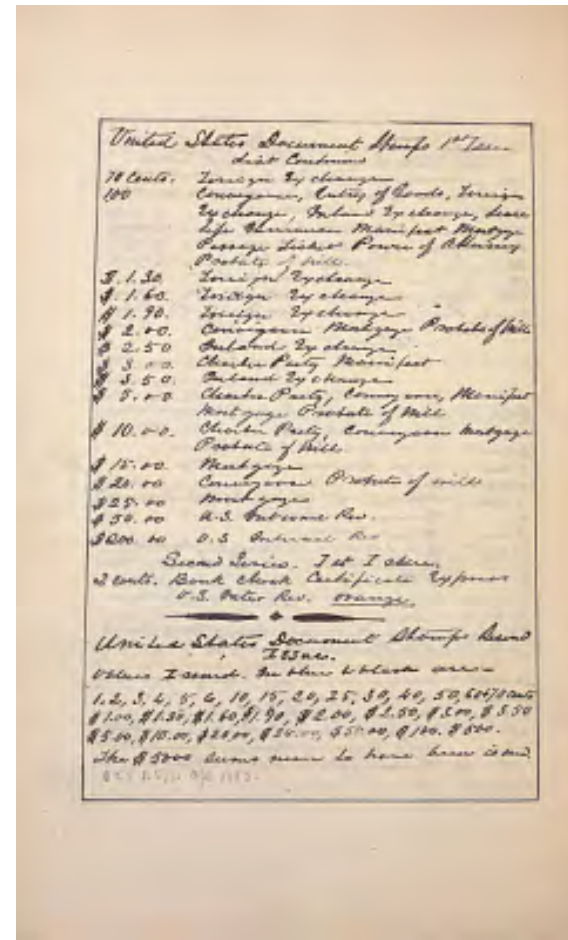 United States Document Stamps 1st Issue
List Continued
70 Cents. Foreign Exchange
100 Conveyance, Entry of Goods, Foreign
Exchange, Inland Exchange, Lease
Life Insurance Manifest Mortgage
Passage Ticket Power of Attorney
Probate of Will.
$.1.30. Foreign Exchange
$.1.60. Foreign Exchange
$1.90. Foreign Exchange
$2.00. Conveyance Mortgage Probate of Will
$2.50 Inland Exchange
$3.00 Charter Party Manifest
$3.50. Inland Exchange
$5.00 Charter Party, Conveyance, Manifest
Mortgage Probate of Will
$10.00. Charter Party, Conveyance Mortgage
Probate of Will.
$15.00. Mortgage
$20.00 Conveyance Probate of will
$25.00 Mortgage
$50.00 U.S. Internal Rev.
$200.00 U.S Internal Rev
Second Series.
2 cents. Bank check Certificate Express
U.S. Inter Rev. orange.
United States Document Stamps Second
Issue.
Values Issued. In blue & black are—
1.2, 3, 4, 5, 6, 10, 15, 20, 25, 30, 40, 50, 60 & 70 cents
$1.00, $1.30, $1.60, $1.90, $2.00, $2.50, $3.00, $3.50
$5.00, $10.00, $20.00, $25.00, $50.00, $100. $500.
The $5000 seems never to have been issued